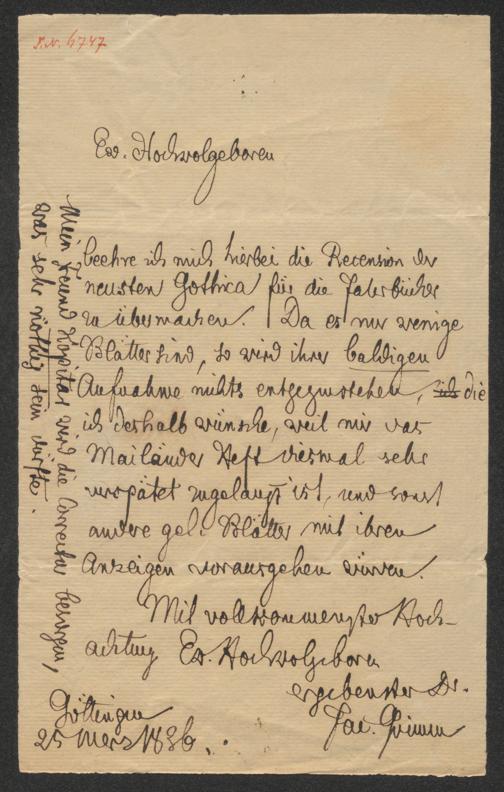 I.N. 6747
Ew. Hochwolgeboren
beehre ich mich hierbei die Recension der
neusten Gothica für die Jahrbücher
zu übermachen. Da es nur wenige
Blätter sind, so wird ihrer baldigen
Aufnahme nichts entgegenstehen, ich die
ich deshalb wünsche, weil mir das
Mailänder Heft diesmal sehr
verspätet zugelangt ist, und sonst
andere gel. Blätter mit ihren
Anzeigen vorausgehen würden.
Mit vollkommenster Hoch-
achtung Ew. Hochwolgeborn
ergebenster Dr.
Jac. Grimm
Göttingen
25 Merz 1836.
Mein Freund Kopitar wird die Correctur besorgen,
was sehr nöthig sein dürfte.